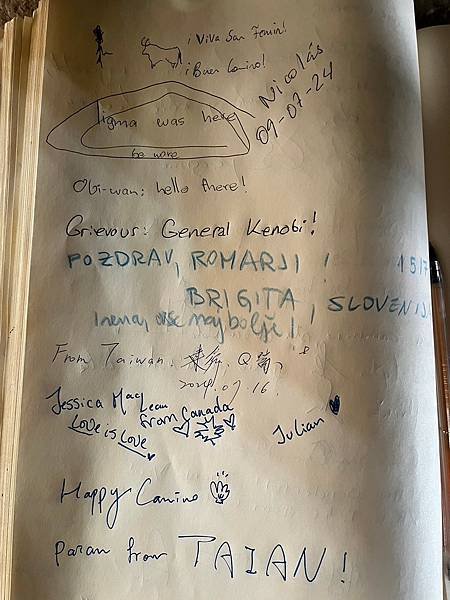 ¡Viva San Fermin!
¡Buen Camino!
Nicolás
09-07-24
ligma was here
be ware
Obi-wan: hello there!
Grievous: General Kenobi!
POZDRAV, ROMARJI !
1517
BRIGITA, SLOVENIJA
vse najboljše!
From Taiwan.
2024.07.16.
Jessica MacLean
from Canada
Love is Love
Julian
Happy Camino
from TAIAN!